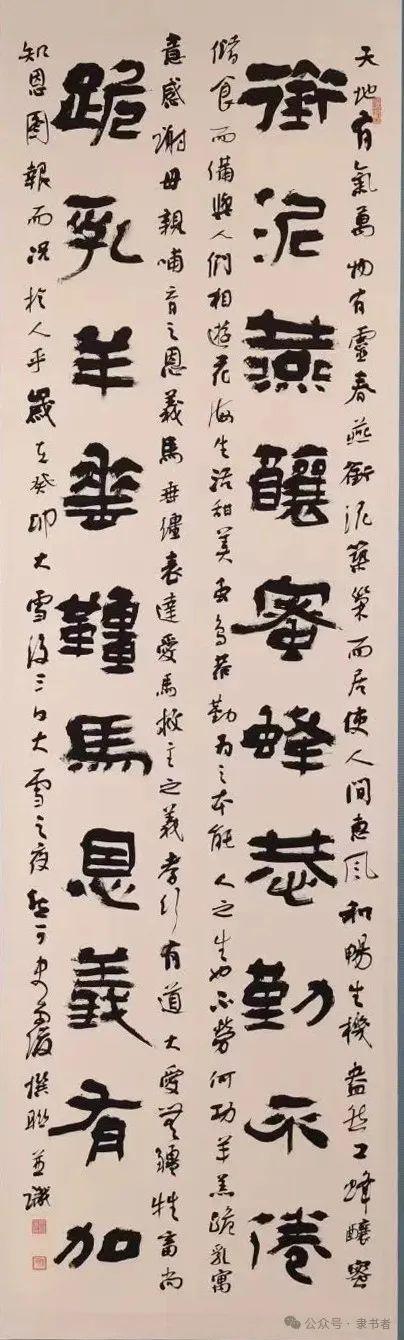 天地有氣萬物有靈春燕銜泥築巢而居使人間惠風和暢生機盎然工蜂釀蜜
銜泥燕釀蜜蜂恭勤不倦
儲食而備與人們相遊花海生活甜美勤為之本能人之生也不勞何功羊羔跪乳寓
意感謝母親哺育之恩義馬垂韁表達愛馬救主之義孝行有道大愛無疆牲畜尚
跪乳羊垂韁馬恩義有加
知恩圖報而況於人乎歲在癸卯大雪後三日大雪之夜撰聯並識
公众号·隶书者